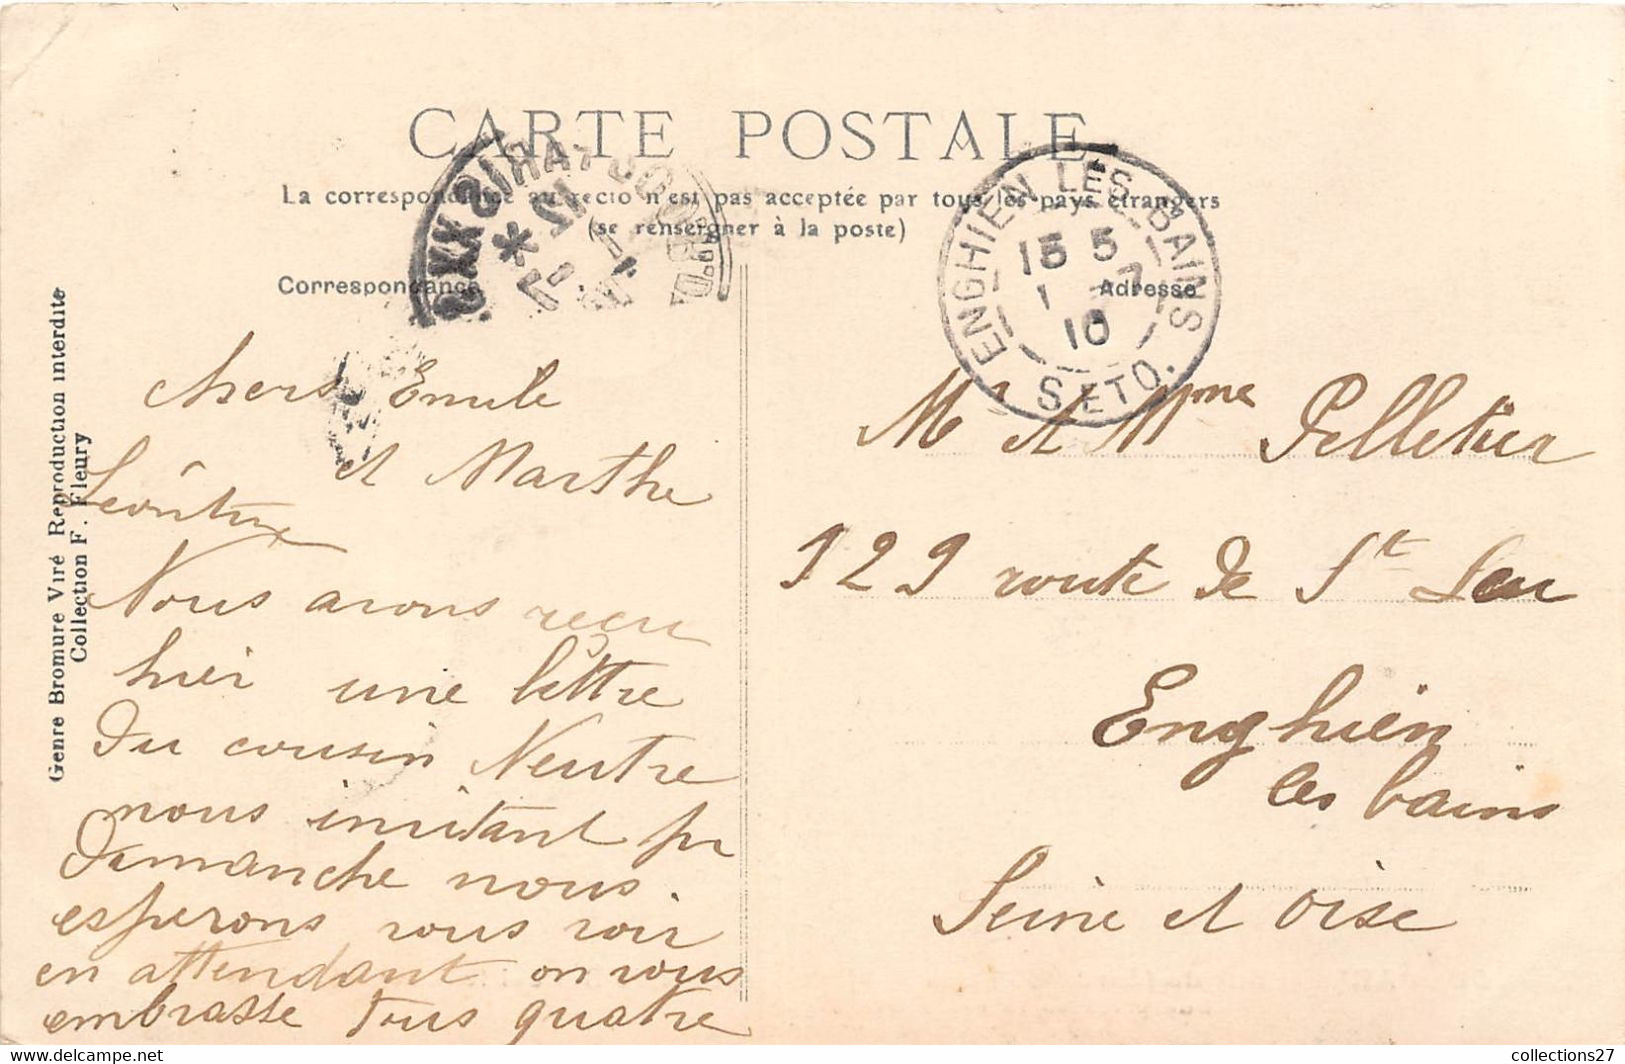 CARTE POSTALE
La correspondance au recto n'est pas acceptée par tous les pays étrangers
(se renseigner à la poste)
Correspondance
Adresse
ENGHIEN LES BAINS
15 5
1 7
10
S. ET O.
PARIS XX
chers Emile
et Marthe
Nous avons reçu
hier une lettre
du cousin Neutre
nous invitant pr
Dimanche nous
esperons vous voir
en attendant on vous
embrasse tous quatre
Mr et Mme Pelletier
129 route de St Leu
Enghien
les bains
Seine et Oise
Genre Bromure Viré Reproduction interdite
Collection F. Fleury
collections27